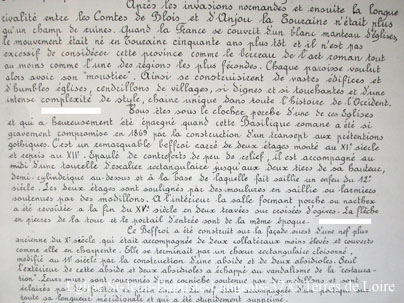 Après les invasions normandes et ensuite la longue
rivalité entre les Comtes de Blois et d'Anjou la Touraine n'était plus
qu'un champ de ruines. Quand la France se couvrit d'un blanc manteau d'églises,
le mouvement était né en Touraine cinquante ans plus tôt et il n'est pas
excessif de considérer cette province comme le berceau de l'art roman tout
au moins comme l'une des régions les plus fécondes. Chaque paroisse voulut
alors avoir son "moustier". Ainsi se construisirent de vastes édifices et
d'humbles églises, cendrillons de villages, si dignes et si touchantes et d'une
intense complexité de style, chaîne unique dans toute l'histoire de l'Occident.
Vous êtes sous le clocher, porche d'une de ces Eglises
et qui a heureusement été épargné quand cette Basilique romane a été si
gravement compromise en 1869 par la construction d'un transept aux prétentions
gothiques. C'est un remarquable beffroi carré de deux étages monté au XIe siècle
et repris au XIIe. Epaulé de contreforts de peu de relief, il est accompagné au
midi d'une tourelle d'escalier rectangulaire jusqu'aux deux tiers de sa hauteur,
demi-cylindrique au-dessus et à la base de laquelle fait saillie un enfeu du 12e
siècle. Les deux étages sont soulignés par des moulures en saillie ou larmiers
soutenues par des modillons. A l'intérieur la salle formant porche ou narthex
a été revoûtée à la fin du XVe siècle en deux travées sur croisées d'ogives. La flèche
en pierres de la tour et le portail d'entrée sont de la même époque.
Le Beffroi a été construit sur la façade ouest d'une nef plus
ancienne du Xe siècle qui était accompagnée de deux collatéraux moins élevés et couverts
comme elle en charpente. Elle se terminait par un chœur rectangulaire cloisonné,
modifié au 11e siècle par la construction d'une abside et de deux absidioles. Seul
l'extérieur de cette abside et deux absidioles a échappé au vandalisme de la "restaura-
tion". Leurs murs sont surmontés d'une corniche soutenue par des modillons et sont
toute sa longueur méridionale et qui a été stupidement supprimé.